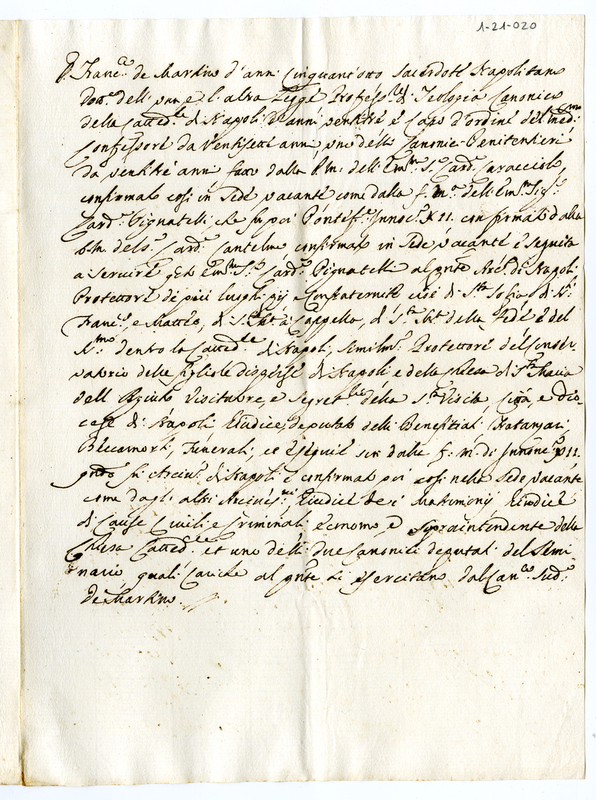 1-21-020
D. Franc.o de Martino d'anni Cinquant'otto Sacerdote Napolitano
Dott.e dell'una, e l'altra Legge Profess.e di Teologia Canonico
della Catted.le di Napoli anni ventitré e Capo d'ordine del med.mo
Confessore da Ventisetti anni, uno delli Canonici Penitentieri
da ventitré anni fatto dalla b.m. dell'Em.mo S.r Card.l Caracciolo,
confirmato così in Sede vacante come dalla f. m. dell'Em.mo Sig.r
Card.l Pignatelli che fu poi Pontef.e Innoc.o XII. confirmato dalla
b.m. del S.r Card.l Cantelmo confirmato in Sede vacante e seguita
a servire Em.mo S.r Card.l Pignatelli al pnte Arc.o di Napoli
Protettore de più luoghi pij e Confraternite cioè di S.ta Sofia, di S.
Franc.o, e Matteo, di Cappella, di S.ta della Fede e del
dentro la Catted.le di Napoli, similm.e Protettore del Conser
vatorio delle figliole disperse di Napoli e della chiesa di S.ta Maria
dell' Visitatore, e Segret.rio della S.ta Visita, Città, e Dio
cese di Napoli Giudice deputato delli Beneficiati
Funerali, et Esequie sin dalla f. m. di Innoc.o XII.
Arciv.o di Napoli e confirmato poi così nella Sede vacante
come dagli altri Giudice de i Matrimonij Giudice
di Cause Civili, e Criminali Economo, e Sopraintendente della
Chiesa Catted.le et uno delli due Canonici deputati del Semi
nario, quali Cariche al pnte si esercitano dal Can.co Sud.o
de Martino.